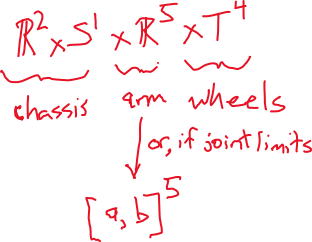 ℝ² × S¹ × ℝ⁵ × T⁴
chassis arm wheels
or, if joint limits
[a, b]⁵